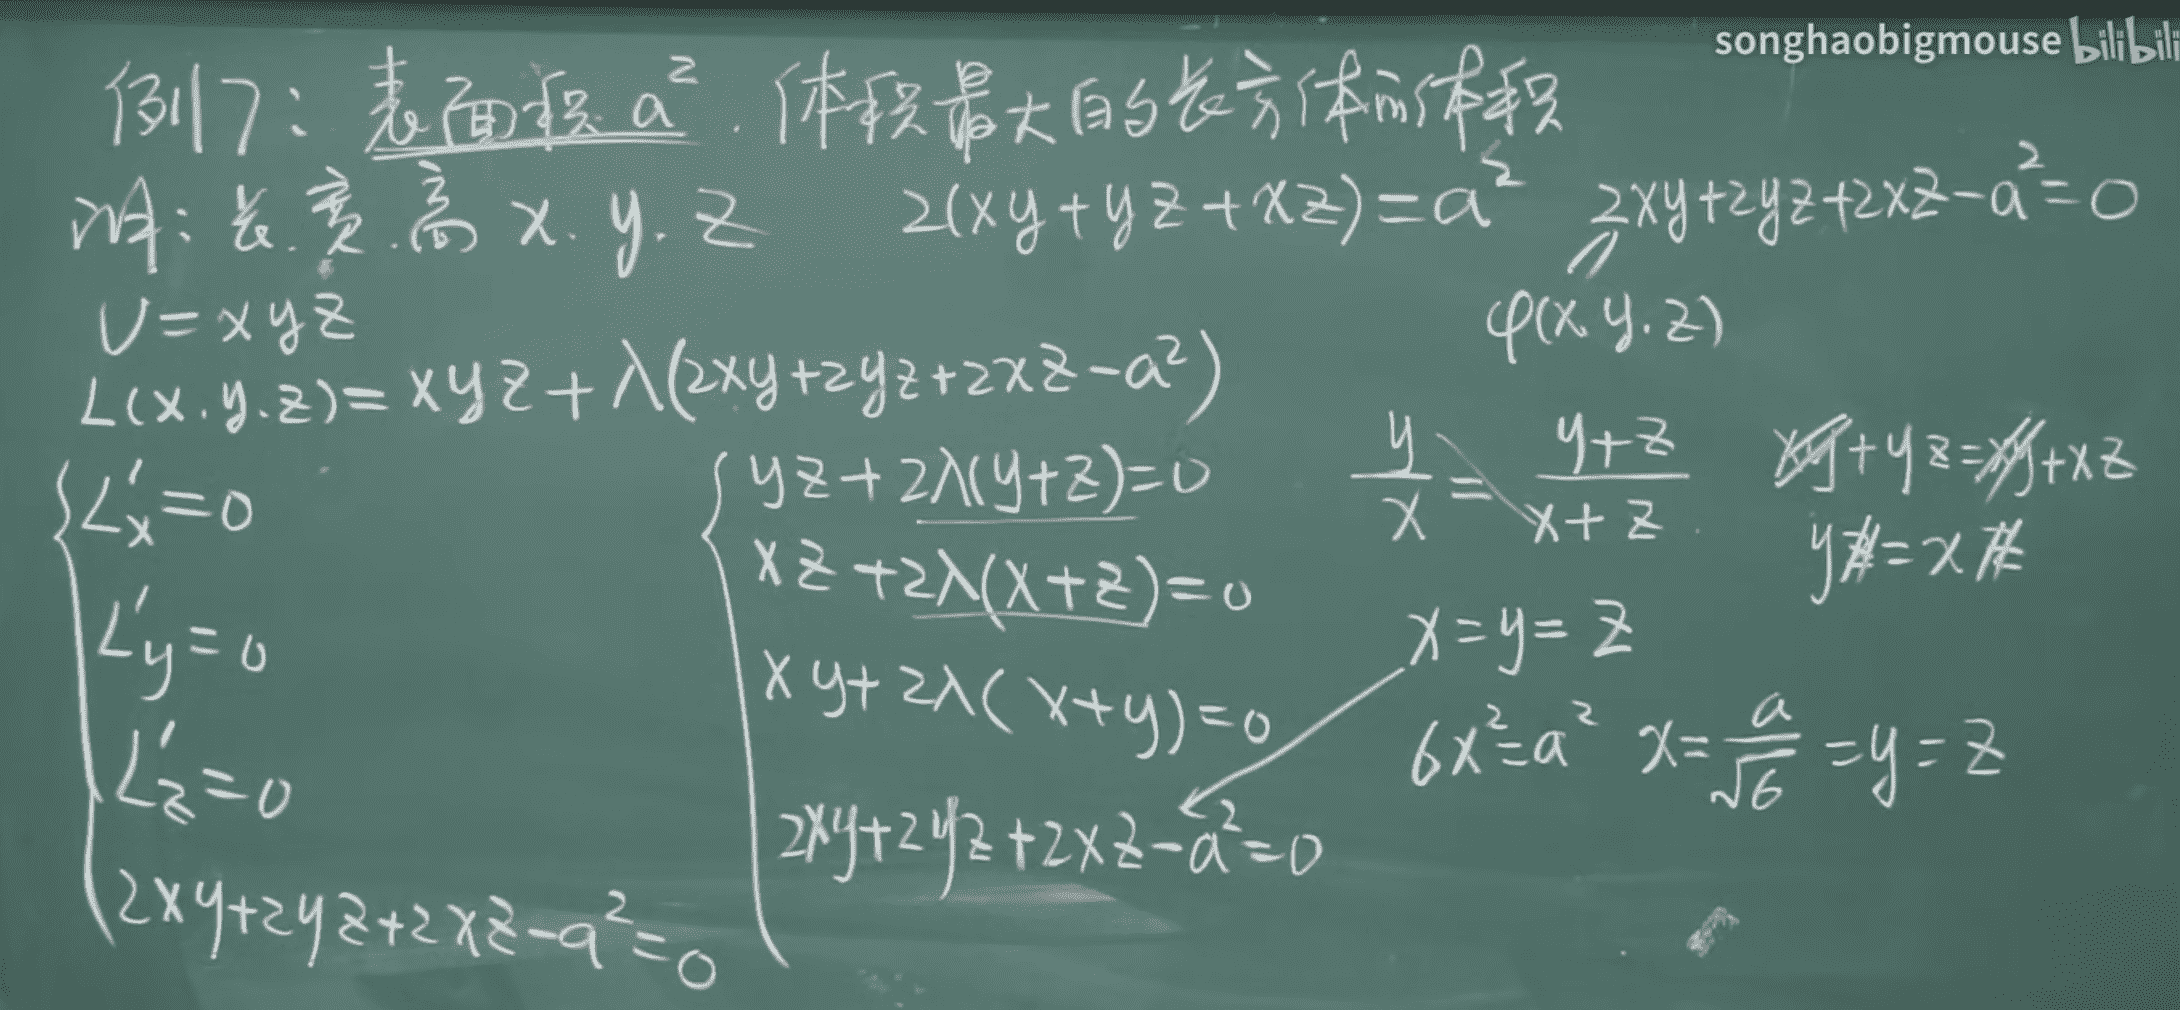 songhaobigmouse bilibili
例7: 表面积 a². 体积最大的长方体的体积
解: 长.宽.高 x.y.z 2(xy+yz+xz)=a² 2xy+2yz+2xz-a²=0
φ(x.y.z)
V=xyz
L(x.y.z)=xyz+λ(2xy+2yz+2xz-a²)
L'x=0
L'y=0
L'z=0
2xy+2yz+2xz-a²=0
yz+2λ(y+z)=0
xz+2λ(x+z)=0
xy+2λ(x+y)=0
2xy+2yz+2xz-a²=0
y/x=(y+z)/(x+z)
xy+yz=xy+xz
yz=xz
x=y=z
6x²=a² x=a/√6=y=z